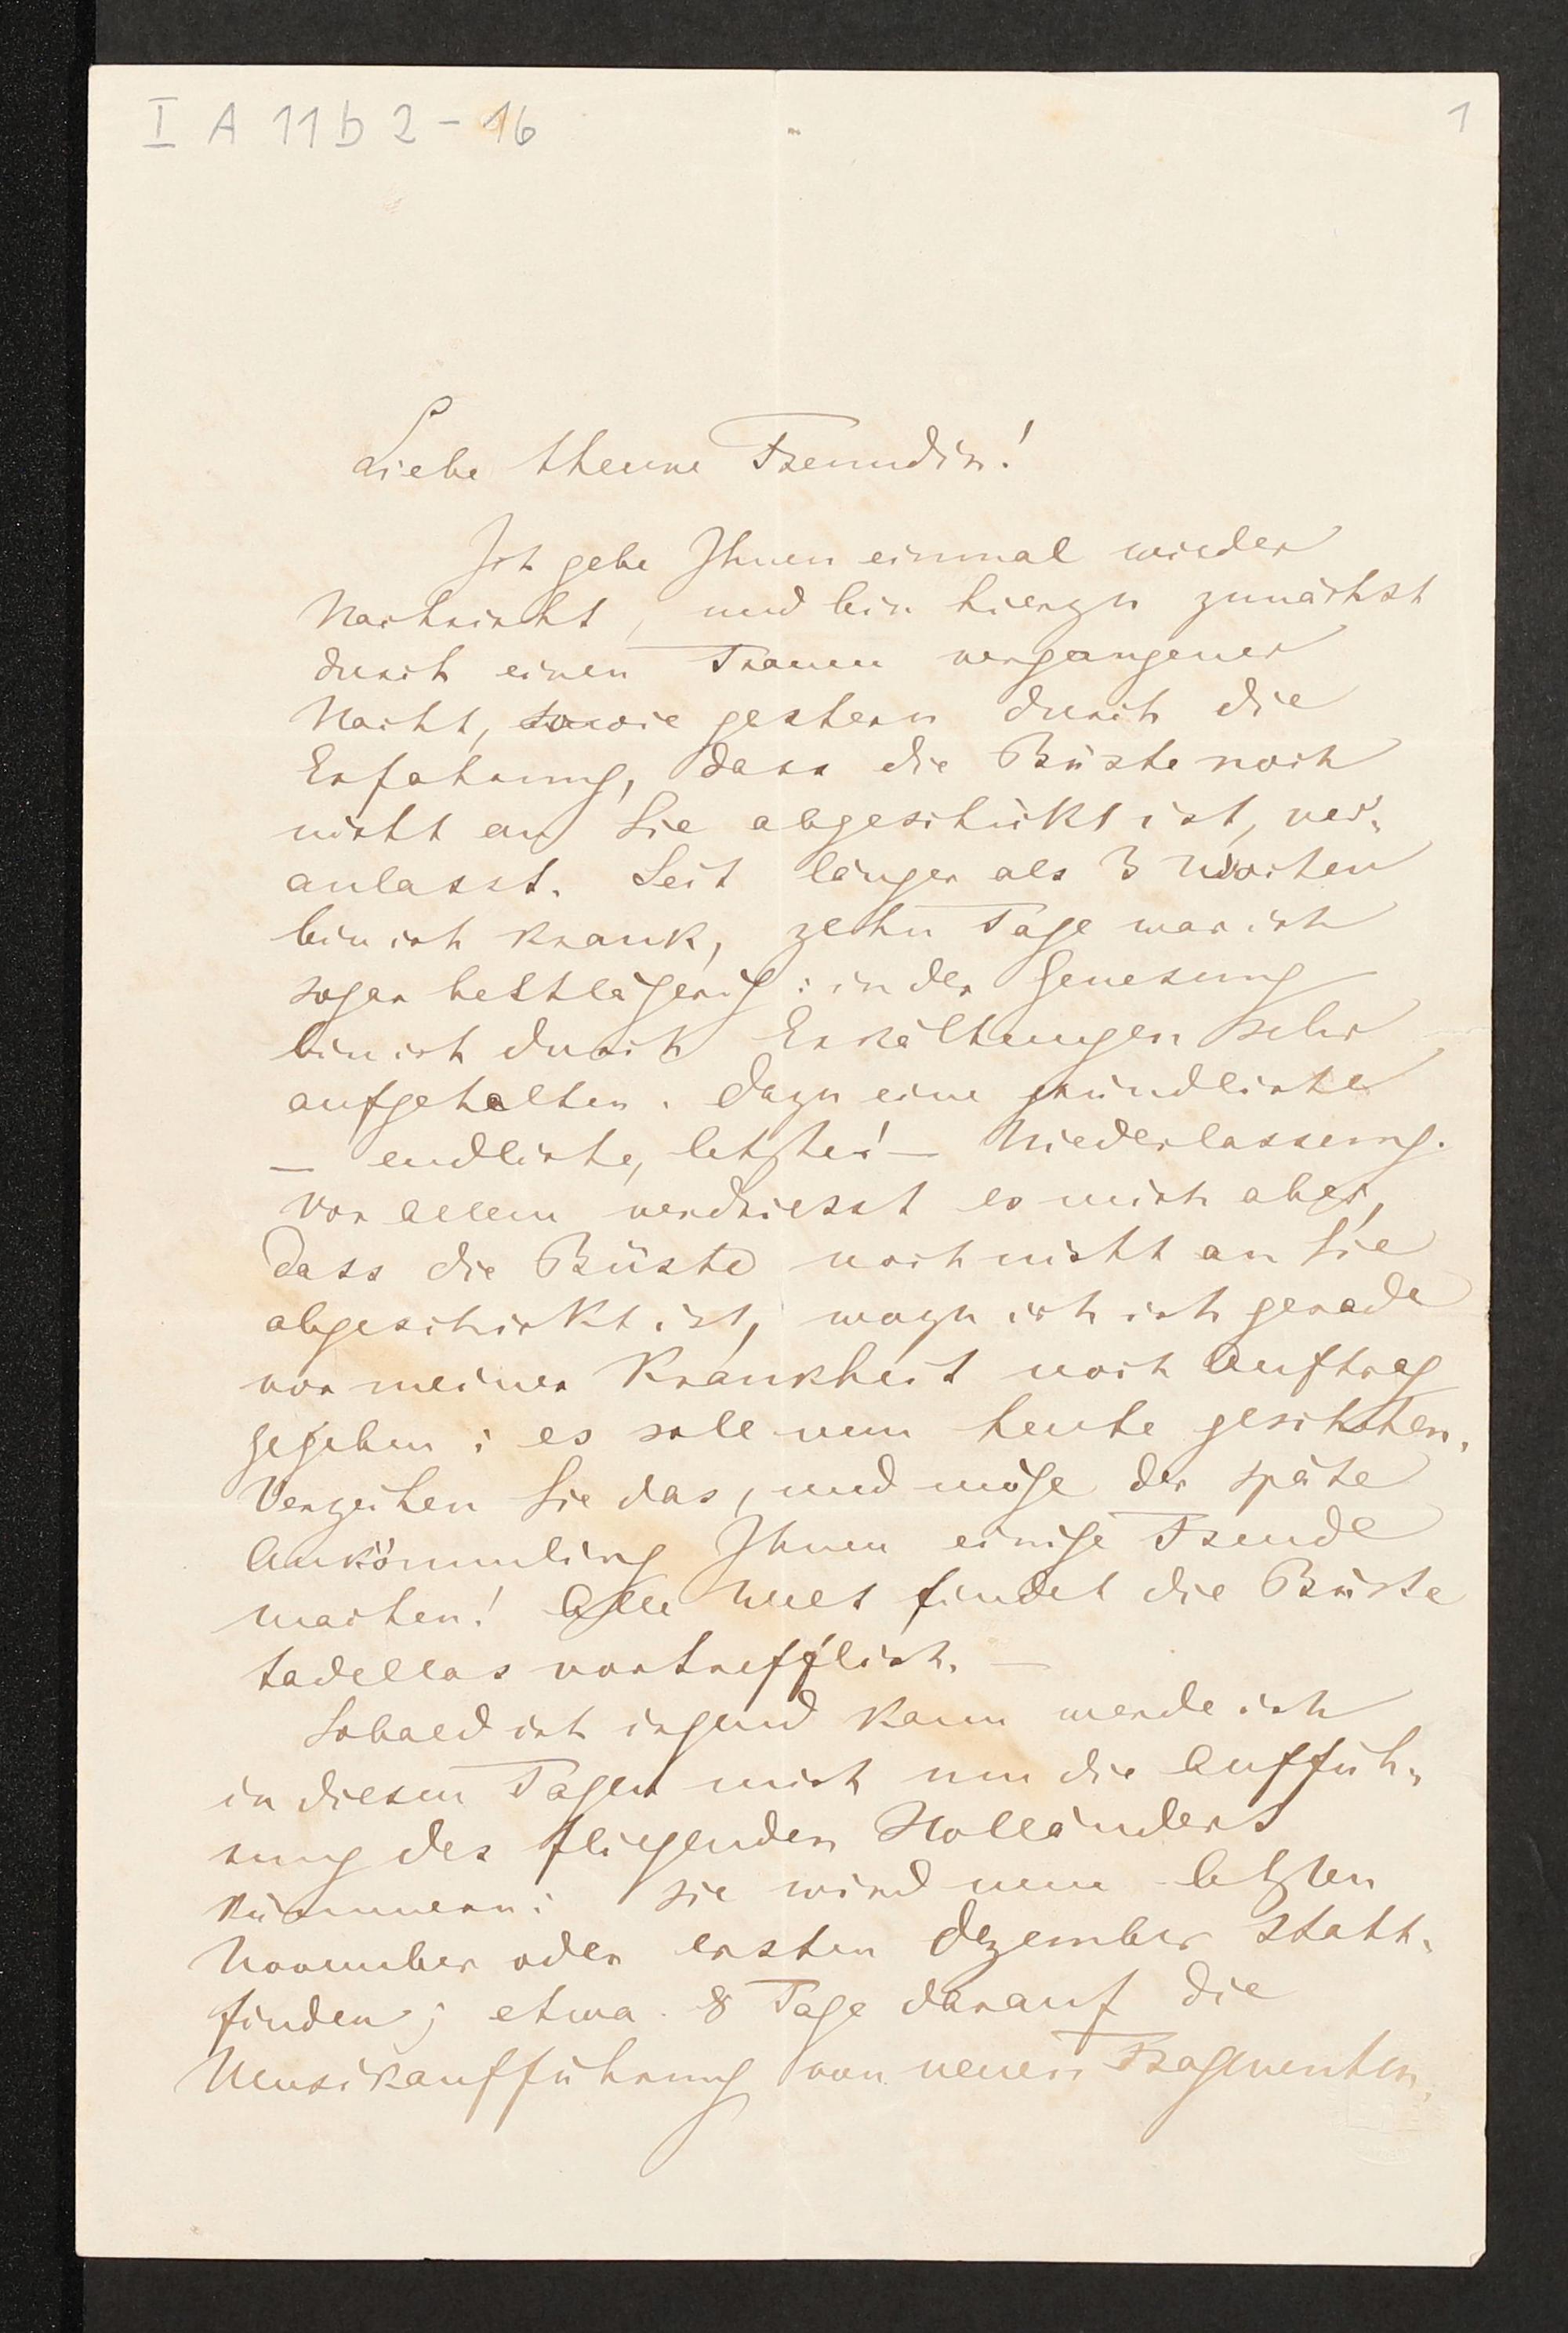 I A 11 b 2 - 16
1
Liebe theure Freundin!
Ich gebe Ihnen einmal wieder
Nachricht, und bin hierzu zunächst
durch einen Traum vergangener
Nacht, sowie gestern durch die
Erfahrung, dass die Büste noch
nicht an Sie abgeschickt ist, ver-
anlasst. Seit länger als 3 Wochen
bin ich krank, zehn Tage war ich
sogar bettlägerig: in der Genesung
bin ich durch Erkältungen sehr
aufgehalten. Dazu eine gründliche
– endliche, letzte! – Niederlassung.
Vor allem verdriesst es mich aber,
dass die Büste noch nicht an Sie
abgeschickt ist, wozu ich ich gerade
vor meiner Krankheit noch Auftrag
gegeben: es soll nun heute geschehen.
Verzeihen Sie das, und möge der späte
Ankömmling Ihnen einige Freude
machen! Alle Welt findet die Büste
tadellos vortrefflich. –
Sobald ich irgend kann werde ich
in diesen Tagen mich um die Auffüh-
rung des fliegenden Holländers
kümmern: sie wird nun letzten
November oder ersten Dezember statt-
finden; etwa 8 Tage darauf die
Musikaufführung von neuen Fragmenten.